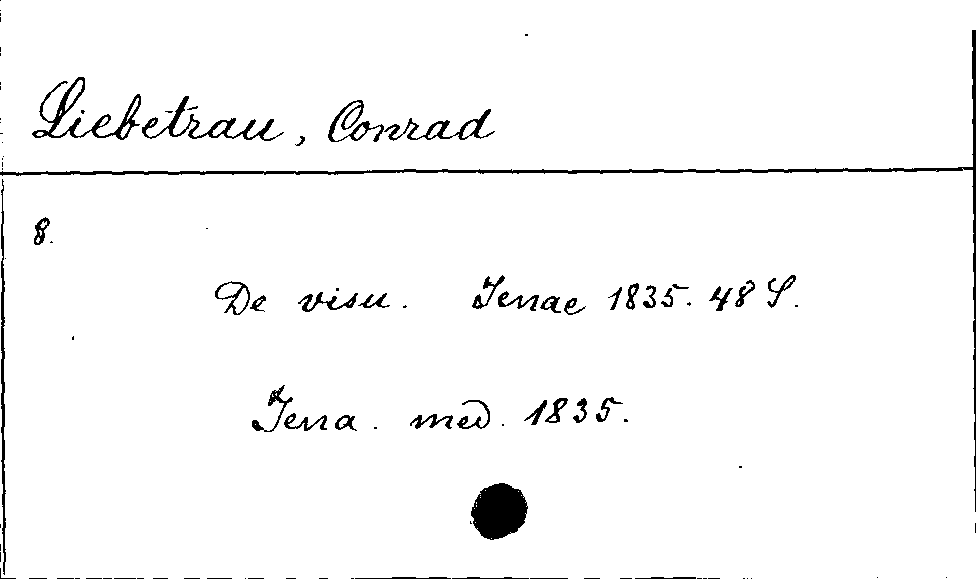 Liebetrau, Conrad
8.
De visu. Jenae 1835. 48 S.
Jena. med. 1835.